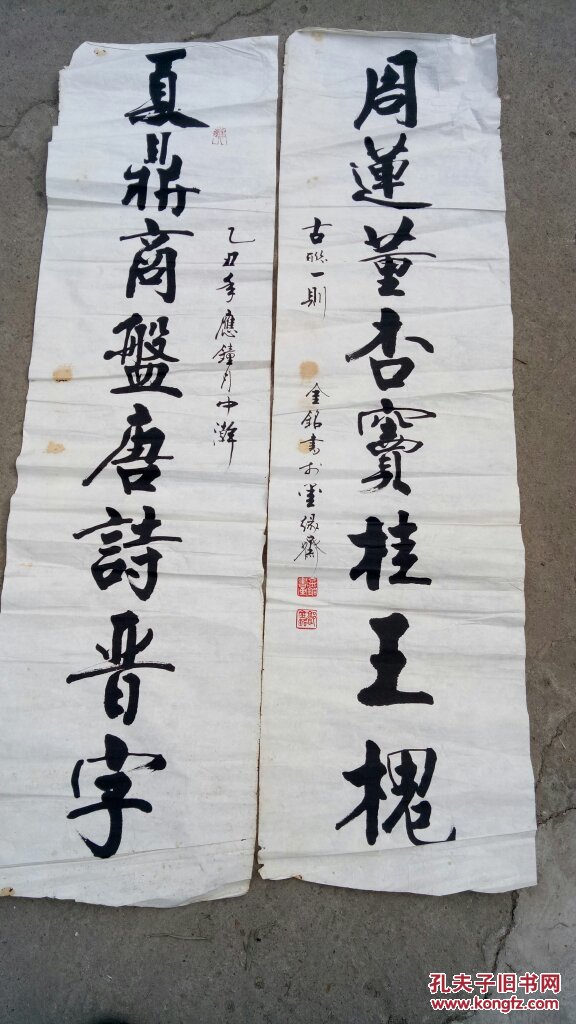 周蓮董杏竇桂王槐
古聯一則
金銘書於墨緣齋
夏鼎商盤唐詩晋字
乙丑年應鐘月中澣
孔夫子旧书网
www.kongfz.com